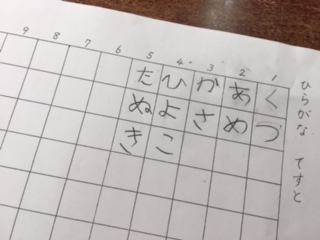 ひらがな てすと
1 2 3 4 5 6 7 8 9
くづ
あめ
かさ
ひよこ
たぬき